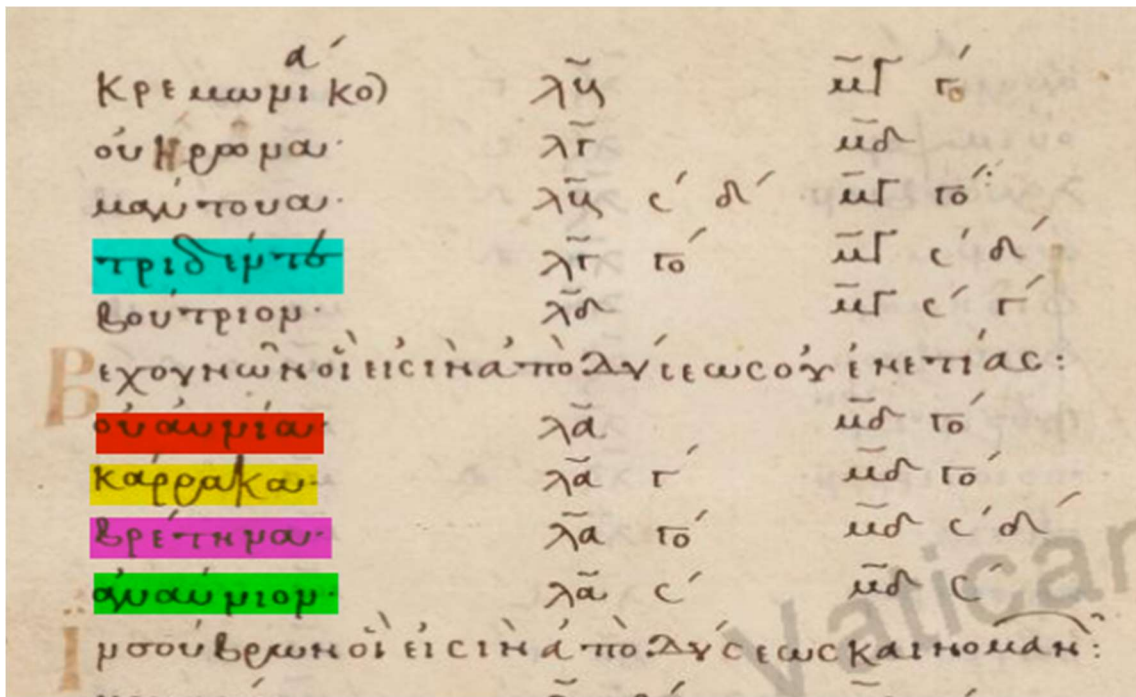 κρεμωνι κο) α´ λβ μγ γο´
ουήρωνα· λγ μδ
μαντουα· λβ ς´ δ´ μγ γο´
τριδέντο λγ γο´ μγ ς´ δ´
βούτριον· λδ μγ ς´ γ´
Βεχουνῶν οἵ εἰσὶν ἀπὸ δύσεως οὐενετίας:
οὐαννία· λα μδ γο´
κάρρακα· λα γ´ μδ γο´
βρέτηνα· λα γο´ μδ ς´ δ´
ἀναύνιον· λα ς´ μδ ς´
ϊνσούβρων οἵ εἰσὶν ἀπὸ δύσεως καινομαν:
Vatican